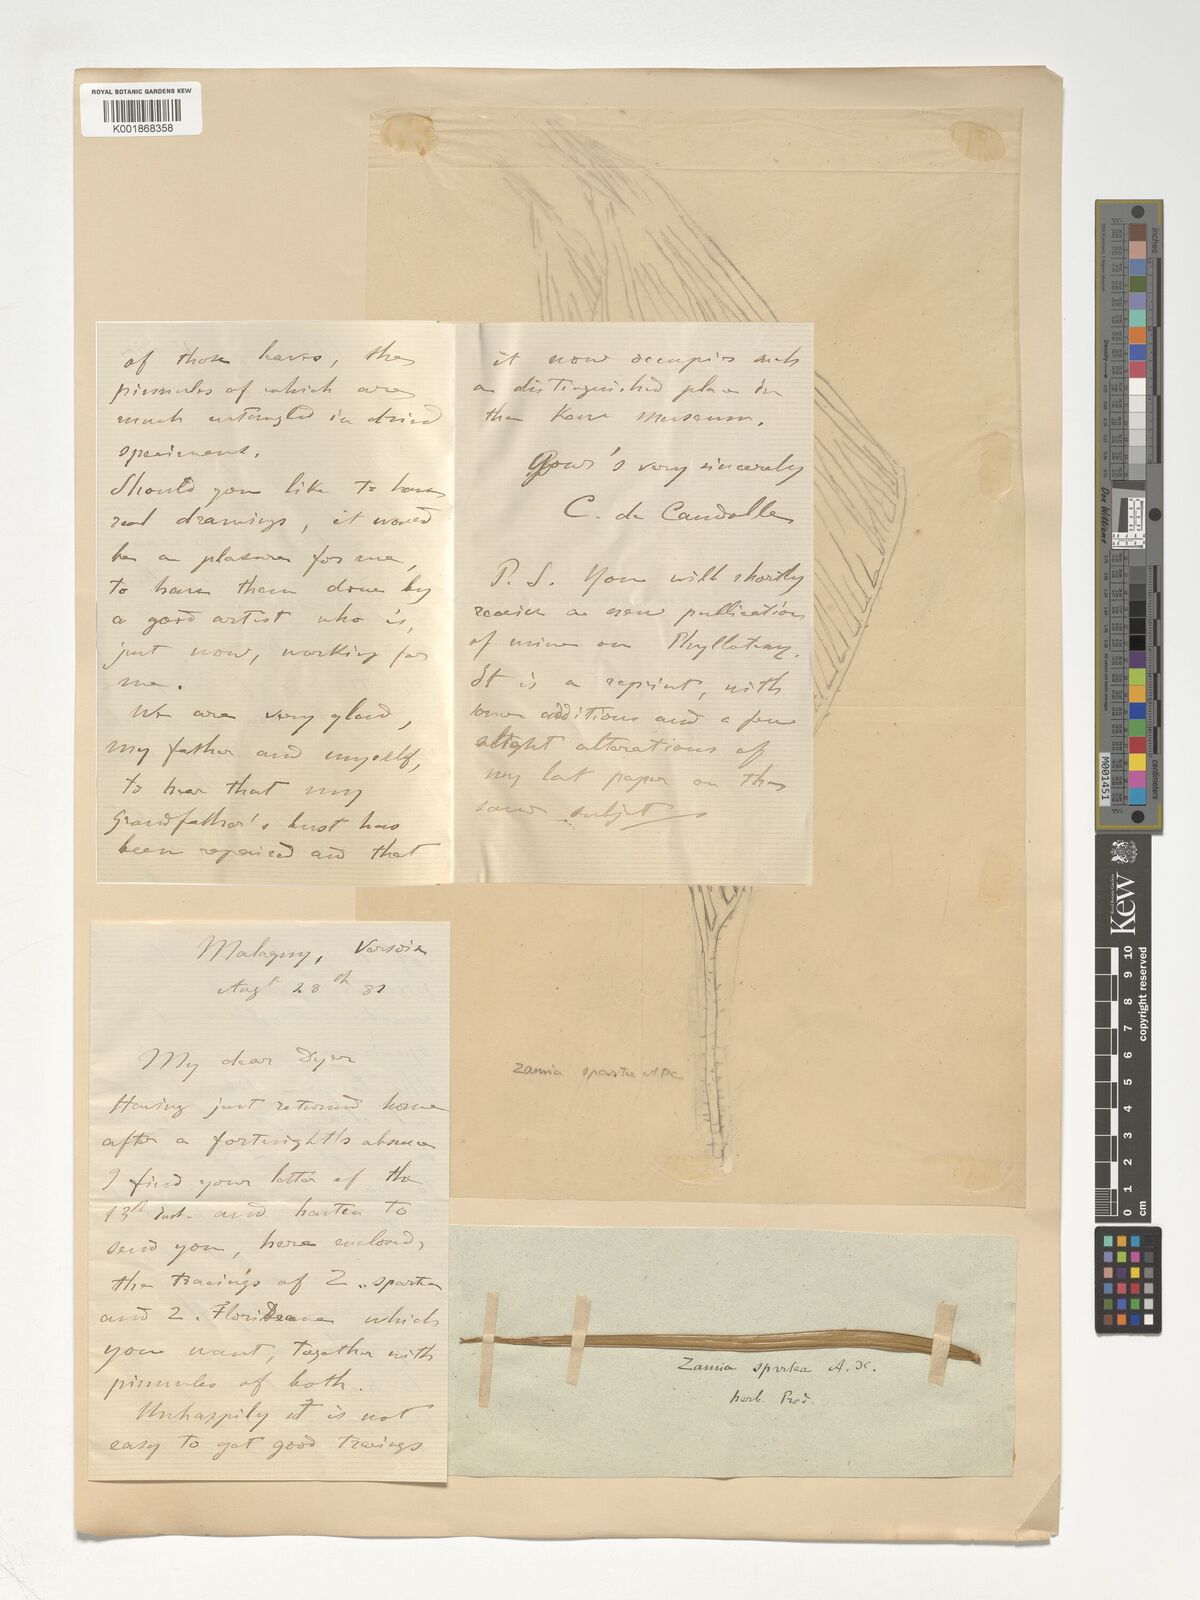 ROYAL BOTANIC GARDENS KEW
K001868358
Malagny, Versoix
Augt 28th 81
My dear Dyer
Having just returned home
after a fortnight's absence
I find your letter of the
13th Inst. and hasten to
send you, here enclosed,
the tracings of Z. spartea
and Z. Floridana which
you want, together with
pinnules of both.
Unhappily it is not
easy to get good tracings
of those leaves, the
pinnules of which are
much entangled in dried
specimens.
Should you like to have
real drawings, it would
be a pleasure for me,
to have them done by
a good artist who is,
just now, working for
me.
We are very glad,
my father and myself,
to hear that my
Grandfather's bust has
been repaired and that
it now occupies such
a distinguished place in
the Kew Museum.
Your's very sincerely
C. de Candolle
P.S. You will shortly
receive a new publication
of mine on Phyllotaxy.
It is a reprint, with
some additions and a few
slight alterations of
my last paper on the
same subject
Zamia spartea ADC
Zamia spartea A. DC.
herb. Prod.
inches
centimetres
Don Williams
M001451
Kew
Royal Botanic Gardens
copyright reserved
0 1 2 3 4 5 6 7 8 9 10
cm